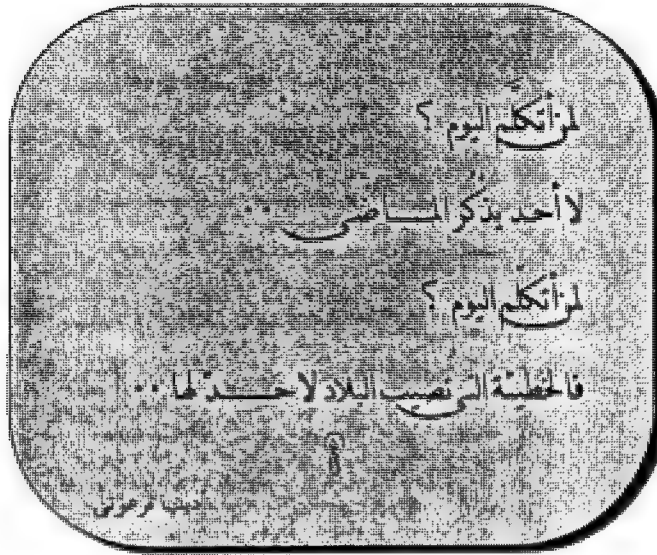 لمن أتكلّم اليوم ؟
لا أحد يذكر المـــاضى ..
لمن أتكلّم اليوم ؟
فالخطيئة التى تصيب البلاد لا حـــــدّ لها ..
فرعونى